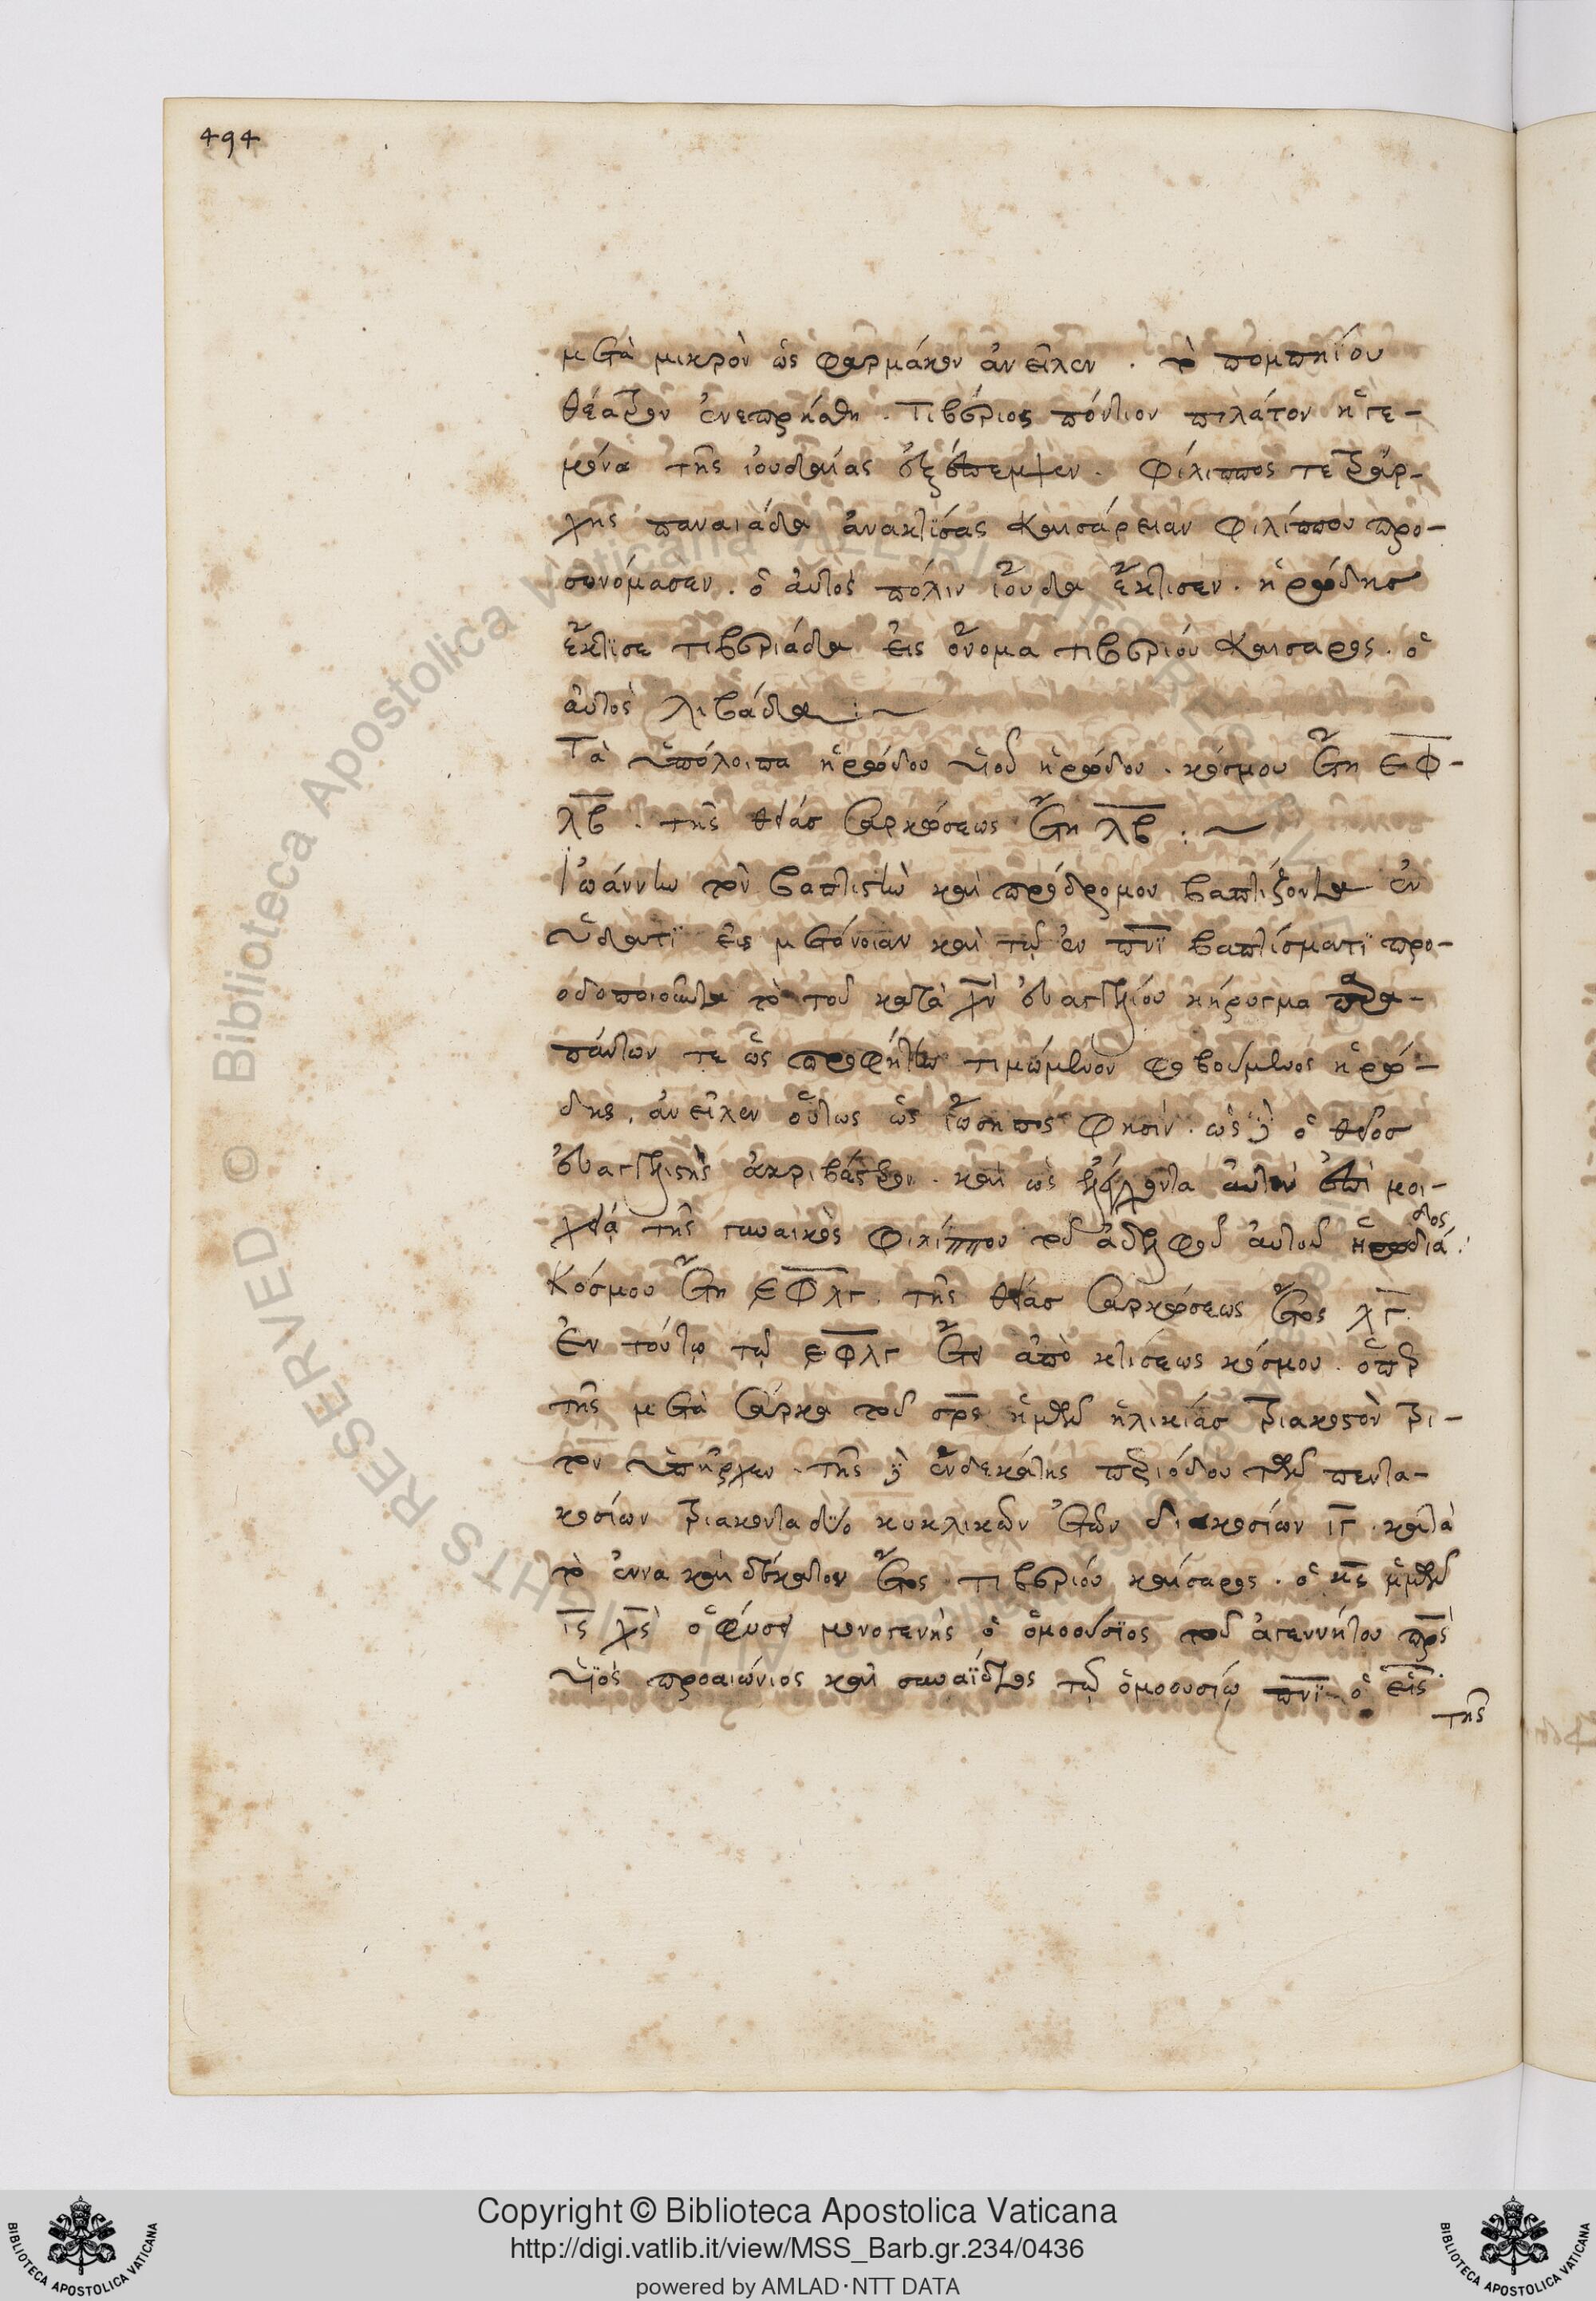 494
μετὰ μικρὸν ὡς φαρμάκων ἀνεῖλεν . τὸ πομπηΐου
θέατρον ἐνεπρήσθη . Τιβέριος πόντιον πιλάτον ἡγε-
μόνα τῆς ἰουδαίας ἐξέπεμψεν . Φίλιππος τετράρ-
χης παναιάδα ἀνακτίσας Καισάρειαν φιλίππου προ-
σωνόμασεν . ὁ αὐτὸς πόλιν ἰουδα ἔκτισεν . ἡρώδης
ἔκτισε τιβεριάδα εἰς ὄνομα τιβερίου Καίσαρος . ὁ
αὐτὸς λιβάδα :~
Τὰ ὑπόλοιπα ἡρώδου υἱοῦ ἡρώδου . κόσμου ἔτη ΕΦ-
λβ . τῆς θείας σαρκώσεως ἔτη λβ :~
Ἰωάννην τὸν βαπτιστὴν καὶ πρόδρομον βαπτίζοντα ἐν
ὕδατι εἰς μετάνοιαν καὶ τῷ ἐν πνϊ βαπτίσματι προ-
οδοποιοῦντα τὸ τοῦ κατὰ χν εὐαγγελίου κήρυγμα παρα-
πάντων τε ὡς προφήτην τιμώμενον φοβούμενος ἡρώ-
δης . ἀνεῖλεν οὕτως ὡς ἰώσηπος φησίν . ὡς δὲ ὁ θεῖος
εὐαγγελιστὴς ἀκριβέστερον . καὶ ὡς ἐλέγχοντα αὐτὸν ἐπὶ μοι-
χείᾳ τῆς γυναικὸς φιλίππου τοῦ ἀδελφοῦ αὐτοῦ ἡρωδιάδος .
Κόσμου ἔτη ΕΦλγ . τῆς θείας σαρκώσεως ἔτος λγ .
Ἐν τούτῳ τῷ ΕΦλγ ἔτει ἀπὸ κτίσεως κόσμου . ὅπερ
τῆς μετὰ σάρκα τοῦ σρς ἡμῶν ἡλικίας τριακοστὸν τρί-
τον ὑπῆρχεν . τῆς δὲ ἑνδεκάτης περιόδου τῶν πεντα-
κοσίων τριακονταδύο κυκλικῶν ἐτῶν διακοσίων ιγ . κατὰ
τὸ ἐννακαιδέκατον ἔτος τιβερίου καίσαρος . ὁ κς ἡμῶν
ις χς ὁ φύσει μονογενὴς ὁ ὁμοούσιος τοῦ ἀγεννήτου πρς
υἱὸς προαιώνιος καὶ συναΐδιος τῷ ὁμοουσίῳ πνϊ . ὁ εἷς
τῆς
Copyright © Biblioteca Apostolica Vaticana
http://digi.vatlib.it/view/MSS_Barb.gr.234/0436
powered by AMLAD·NTT DATA
BIBLIOTECA APOSTOLICA VATICANA
BIBLIOTECA APOSTOLICA VATICANA